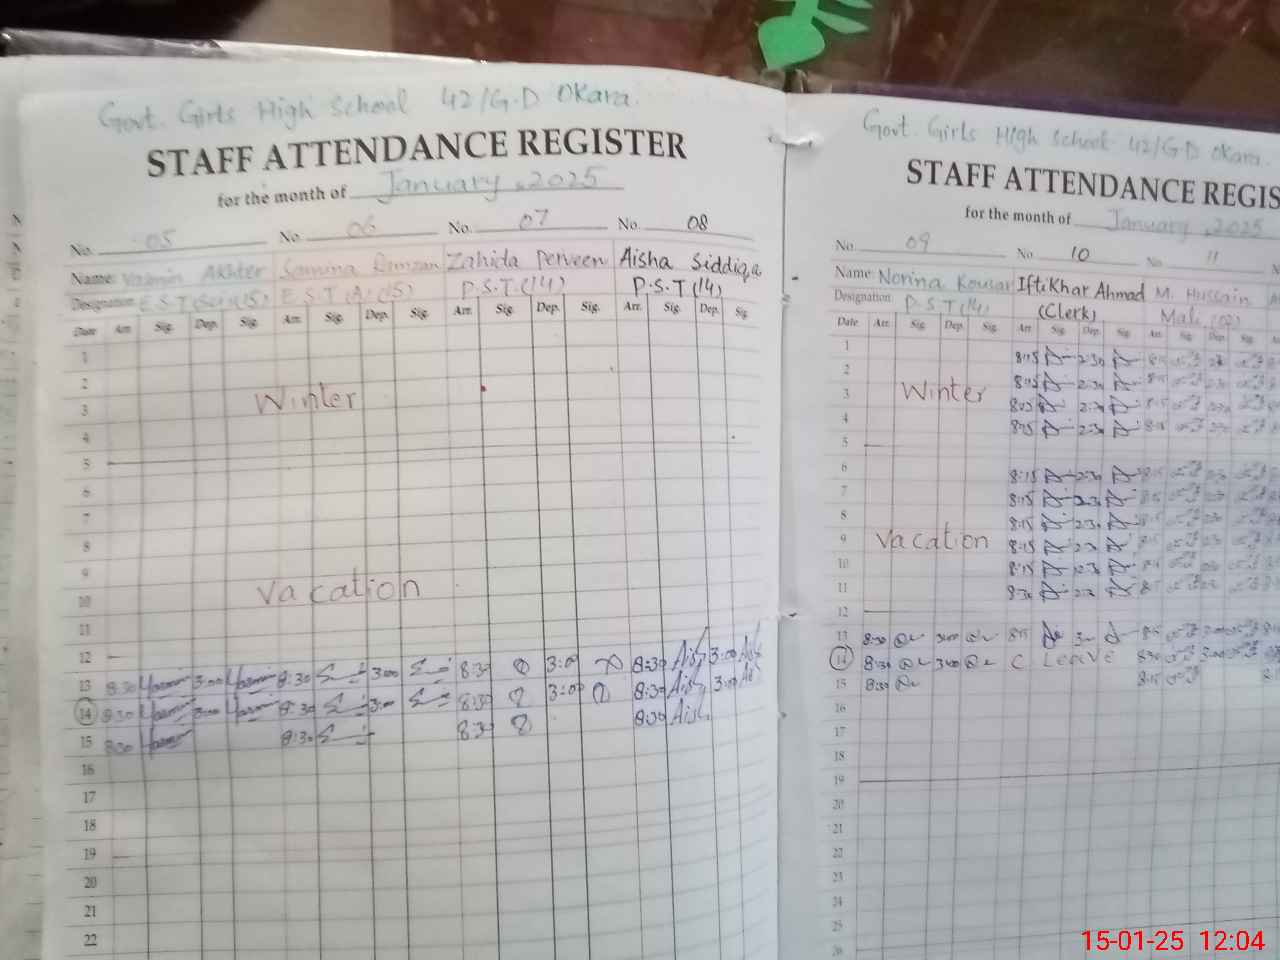 Govt. Girls High School 42/G.D Okara.
STAFF ATTENDANCE REGISTER
for the month of January, 2025
No. 05 No. 06 No. 07 No. 08
Name: Yasmin Akhter Samina Ramzan Zahida Perveen Aisha Siddiqa
Designation: E.S.T E.S.T P.S.T(14) P.S.T(14)
Date Arr. Sig. Dep. Sig. Arr. Sig. Dep. Sig. Arr. Sig. Dep. Sig. Arr. Sig. Dep. Sig.
1
2
Winter
3
4
5
6
7
8
9
Vacation
10
11
12
13 8:30 Yasmin 3:00 Yasmin 8:30 3:00 8:30 3:00 8:30 Aish 3:00 Aish
14 8:30 Yasmin 3:00 Yasmin 8:30 3:00 8:30 3:00 8:30 Aish 3:00 Aish
15 8:30 Yasmin 8:30 8:30 8:30 Aish
16
17
18
19
20
21
22
Govt. Girls High School 42/GD Okara.
STAFF ATTENDANCE REGIS
for the month of January, 2025
No. 09 No. 10 No. 11
Name: Norina Kousar Iftikhar Ahmad M. Hussain
Designation: P.S.T(14) (Clerk) Mali
Date Arr. Sig. Dep. Sig. Arr. Sig. Dep. Sig. Arr. Sig. Dep. Sig.
1 8:15 2:30 8:15
2 8:15 2:30 8:15
3 Winter 8:15 2:30 8:15
4 8:15 2:30 8:15
5
6 8:15 2:30 8:15
7 8:15 2:30 8:15
8 8:15 2:30
9 Vacation 8:15 2:30
10 8:15 2:30
11 8:30 2:30
12
13 8:30 3:00 8:15 3:00 8:15 3:00
14 8:30 3:00 C Leave 8:30 3:00
15 8:30 8:15
16
17
18
19
20
21
22
23
24
25
26
15-01-25 12:04